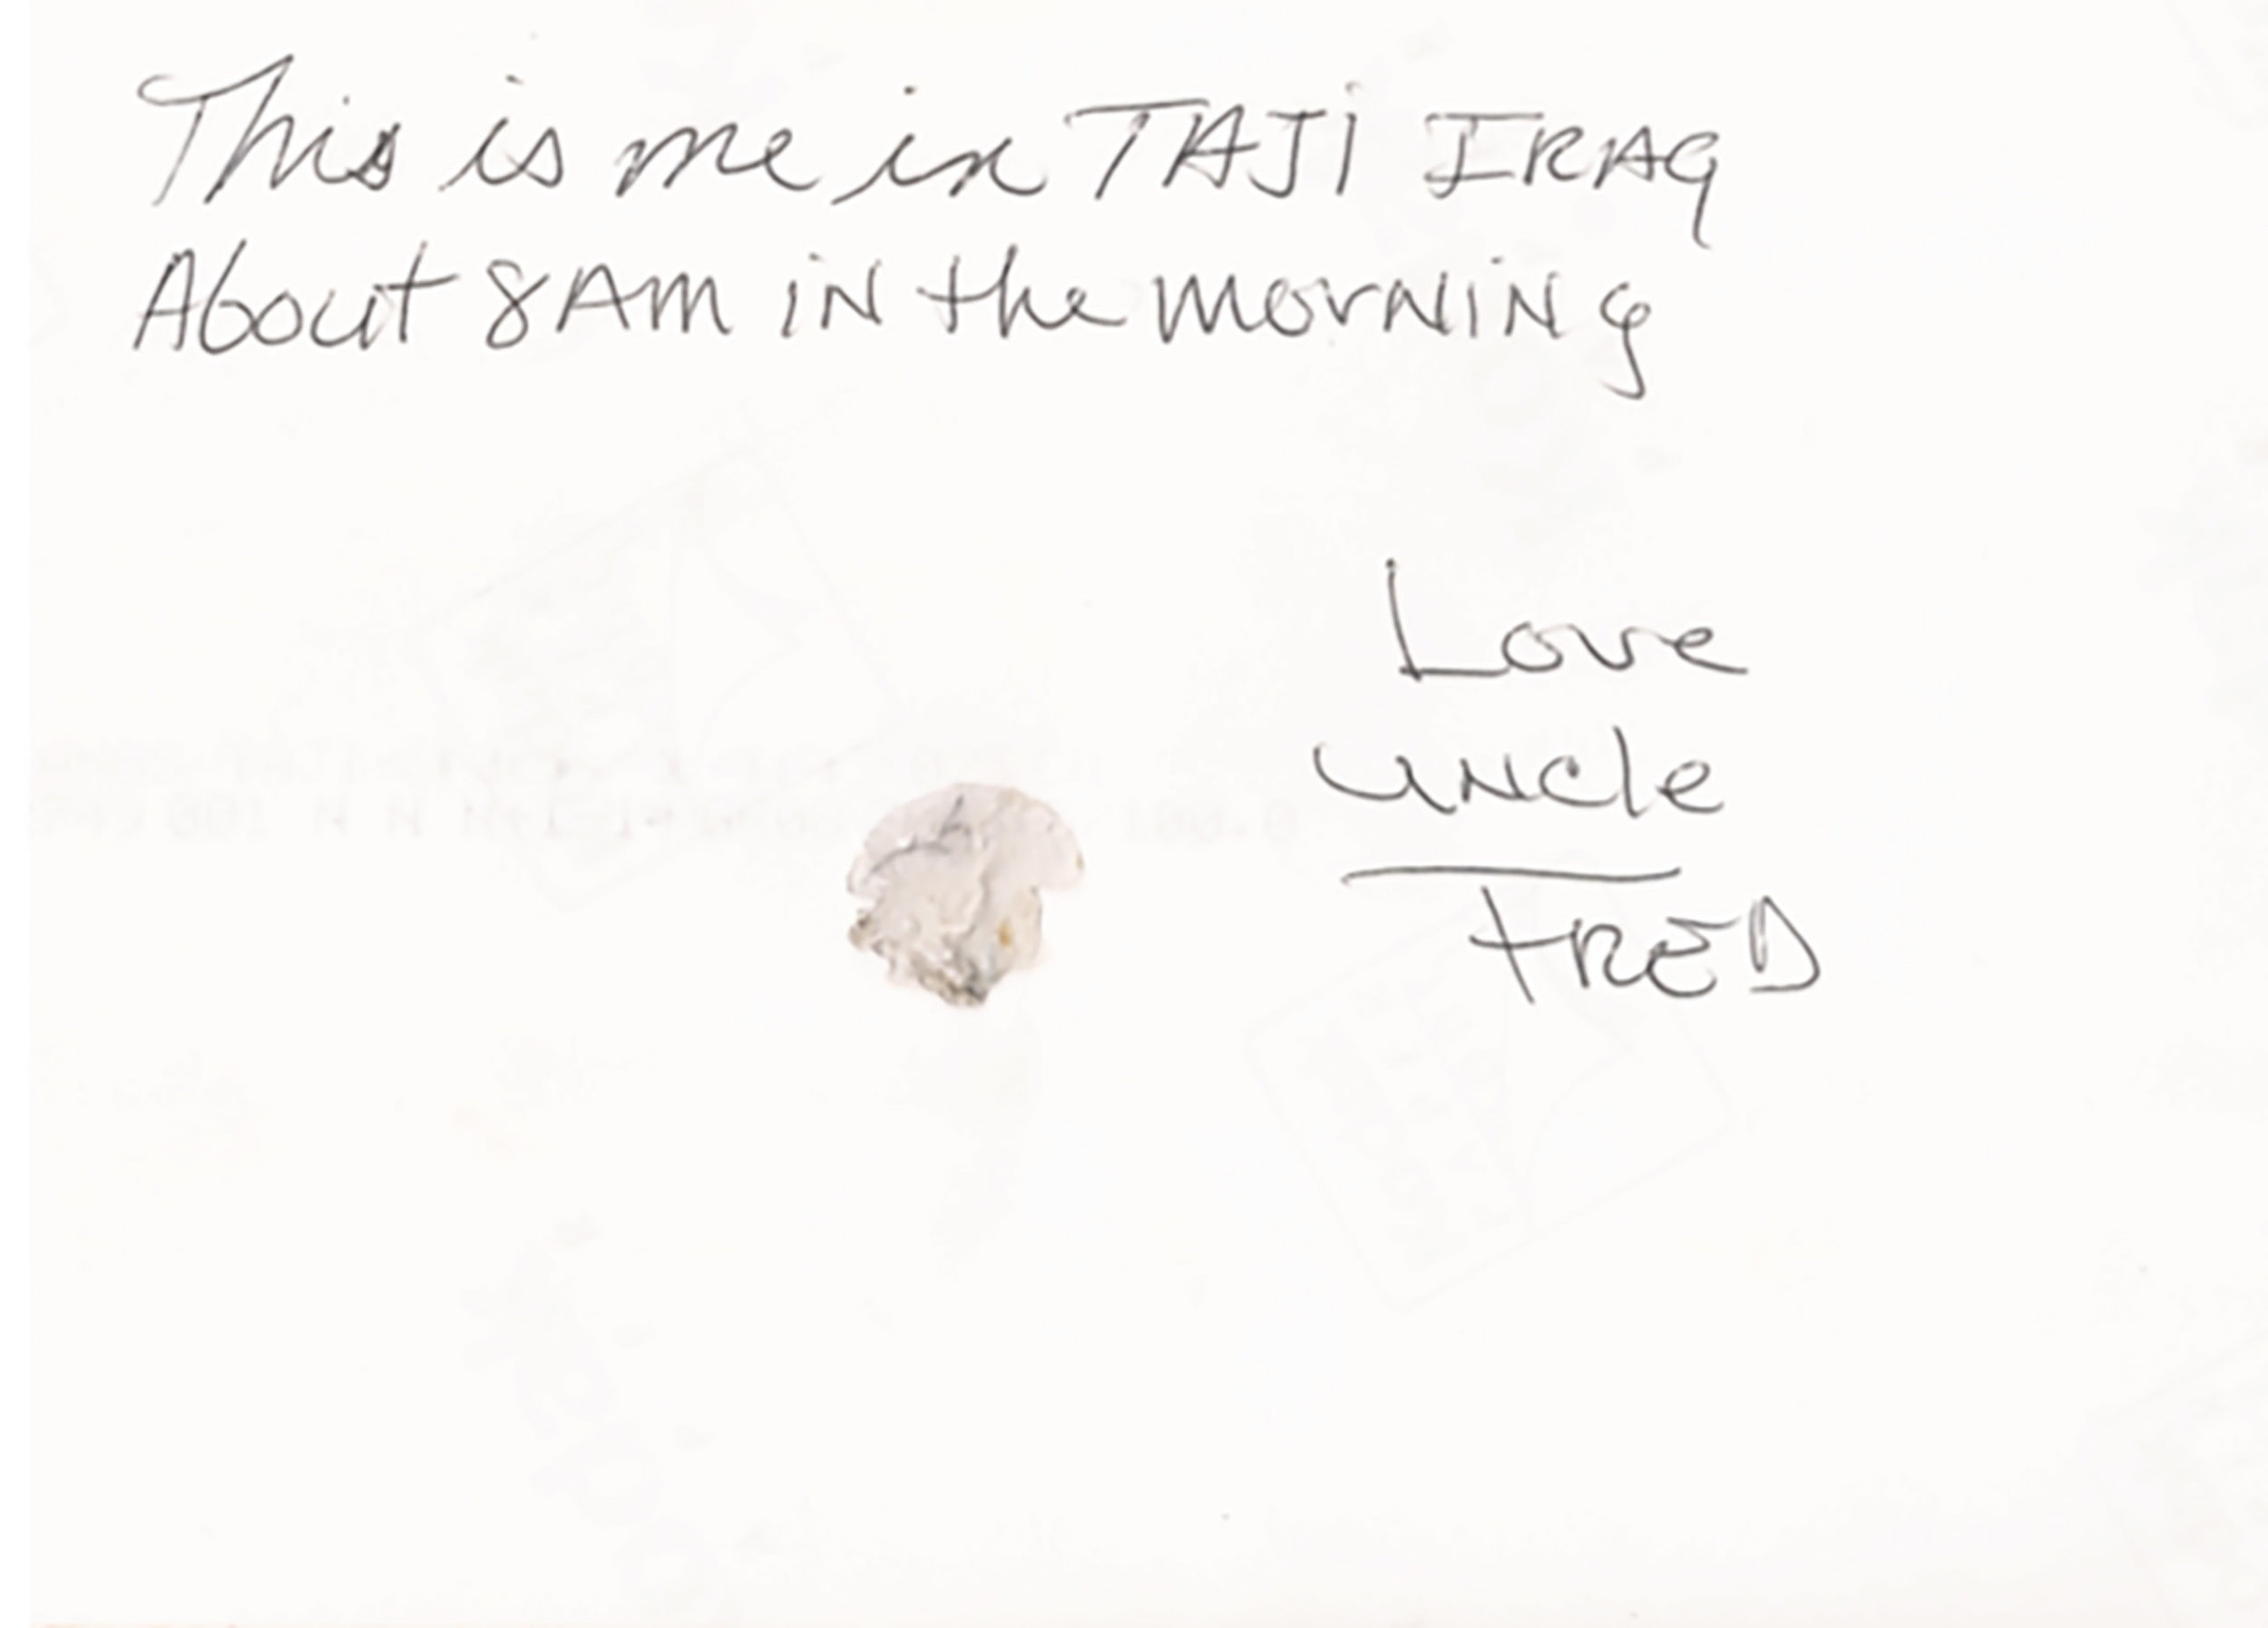 This is me in TAJi IRAq
About 8AM iN the morNiNg
Love
uNcle
FRED